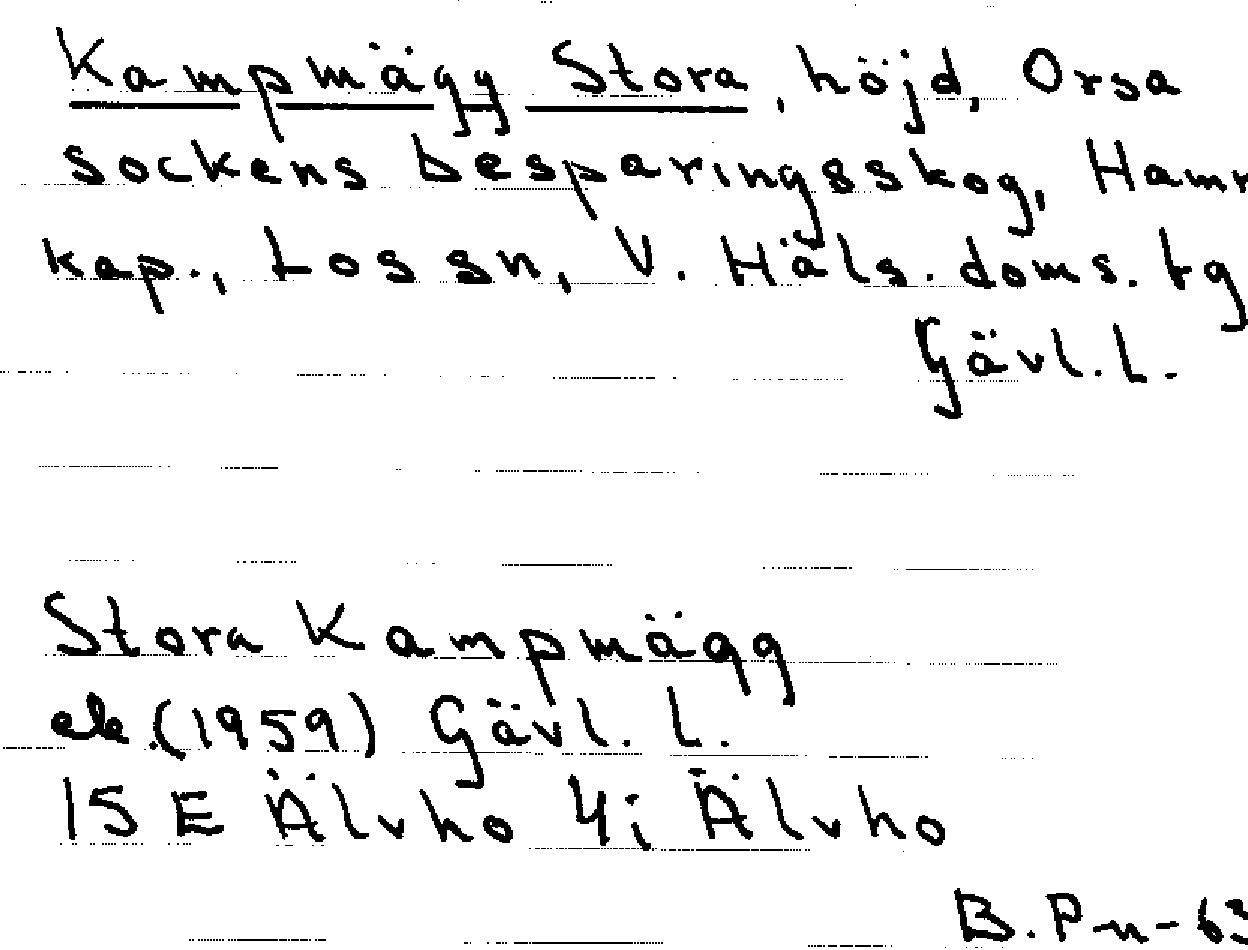 Kampmägg Stora, höjd, Orsa
sockens besparingsskog, Hamr
kap., Los sn, V. Häls. doms. tg
Gävl. l.
Stora Kampmägg
ek. (1959) Gävl. l.
15 E Älvho 4i Älvho
B. P-n - 63